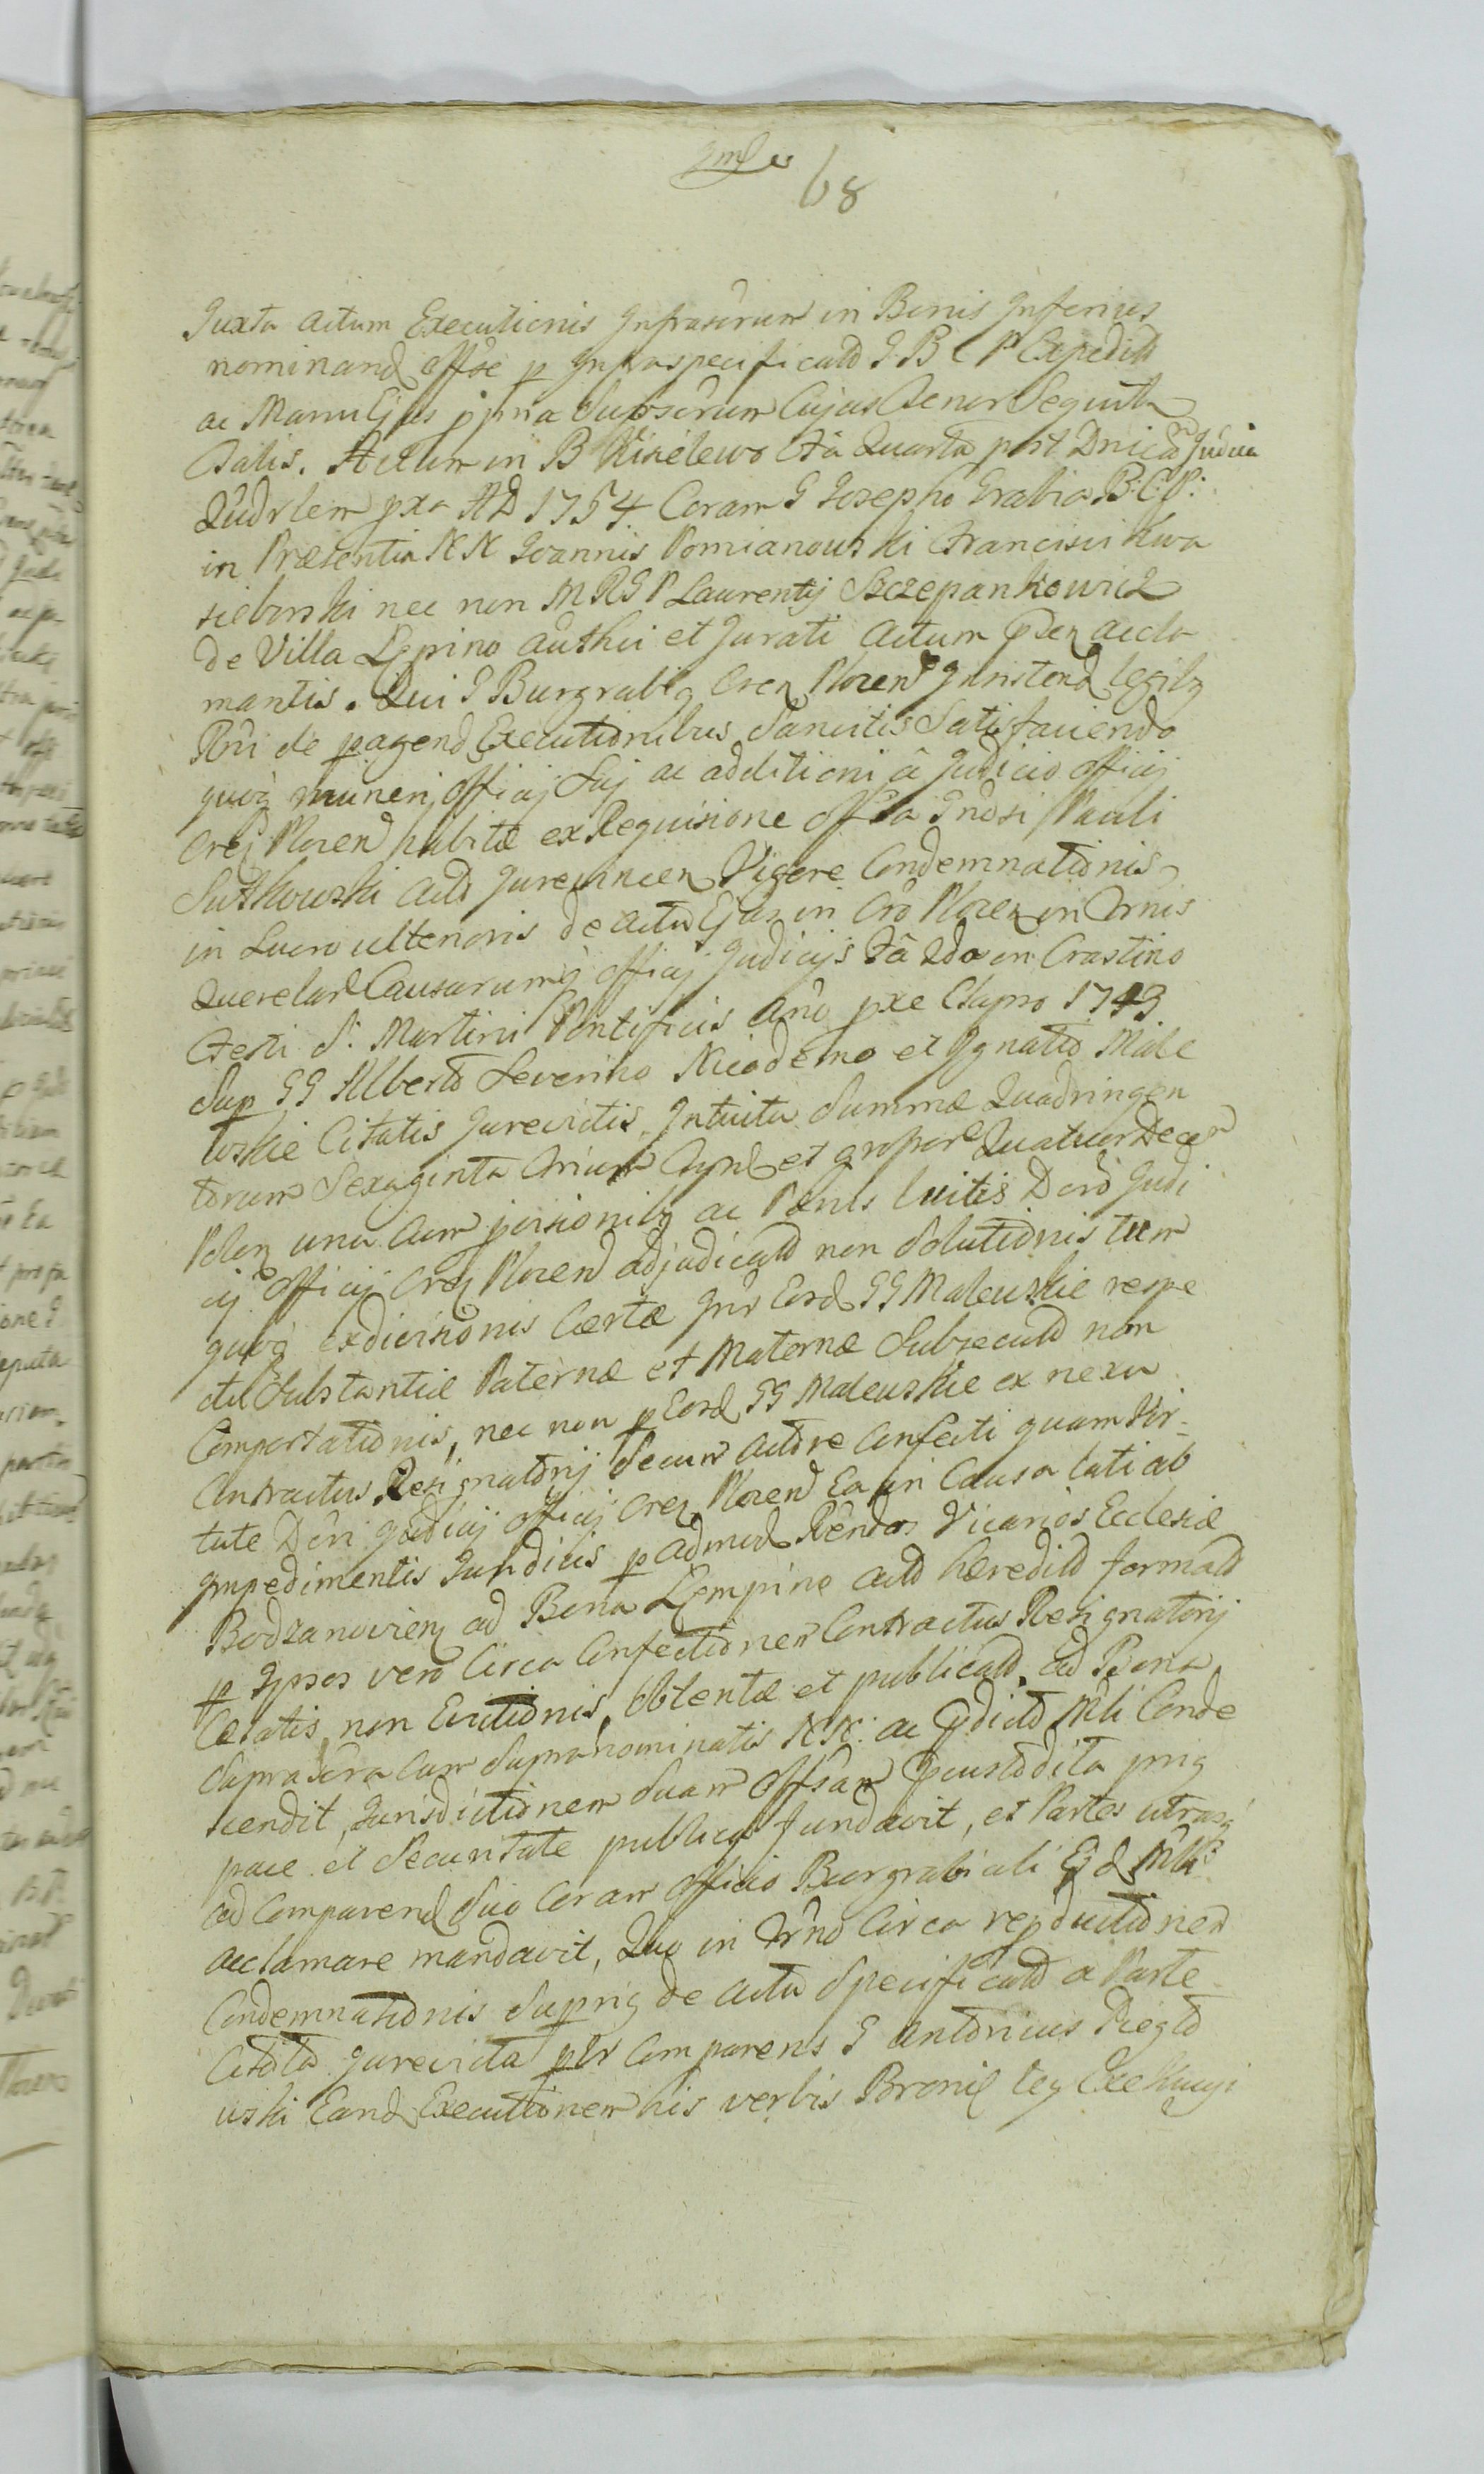 68
Juxta actum Executionis Infrascrum in Bonis Inferius
nominand offse p Infraspecificatd G. B C P Expedit
ac Manu Ejus ppria Subscrum Cujus Tenor Sequitr
Talis. Actum in B Kisielewo fâ Quarta post Dnicâ Judica
Qudrlem pxa AD 1754 Coram G Josepho Grabia B: C: P:
in Præsentia NN Joannis Pomianowski Francisci Kwa
sieborski nec non MRGP Laurentij Szczepankowicz
de Villa Lępino authci et Jurati actum pden accla
mantis. Qui G Burgrabig Cren Plocen Insistend legibg
Rni de pagend Executionibus Sancitis Satisfaciendo
quoq muneri officij Sui ac additioni â Judicio officij
Crej Plocen habitæ ex Requisione offsa Gnosi Pauli
Sutkowski actd Jurevincen Vigore Condemnationis
in Lucro ulterioris de actu Ejus in Crô Plocen in Trnis
Querelar Causarumq officij Judicijs fâ 2da in Crastino
Festi S: Martini Pontificis Anô pxe Elapso 1743
Sup GG Alberto Severino Nicodemo et Ignatio Male
wskie Citatis Jurevictis Intuitu Summæ Quadringen
torum Sexaginta Trium Tynf et grossor Quatuordecem
Polen una cum pisionibg ac Pænis luitis Dcrô Judi
cij Officij Crej Plocen adjudicatd non Solutionis tum
quoq exdivisionis Cærtæ Inr Eosd GG Malewskie respe
ctu Substantiæ Paternæ et Maternæ Subsecutd non
Comportationis, nec non p Eosd GG Malewskie ex nexu
Contractus Resignatorij Secum actôre Confecti quam Vir-
tute Dcri Judicij officij Crej Plocen Ea in Causa lati ab
Impedimentis Juridicis p admod Rendos Vicarios Ecclesiæ
Bodzanovien ad Bona Lempino actd hæreditd formatd
p Ipsos vero Circa Confectionem Contractus Resignatorij
Celatis non Evictionis, Obtentæ et publicatd, ad Bona
Suprascra cum Supranominatis NN: ac pdictd Mli Conde
scendit, Jurisdictionem Suam Offsam pcustodita prig
pace et Securitate publica fundavit, et Partes utrasq
ad Comparend Suo Coram Officio Burgrabiali Ejd Mli
acclamare mandavit, Quo in Trnô Circa repductionem
Condemnationis Suprig de actu Specificatd a Parte
Citata Jurevicta pltr Comparens G Antonius Piegło
wski Eand Executionem his verbis Bronię tey Exekucyi